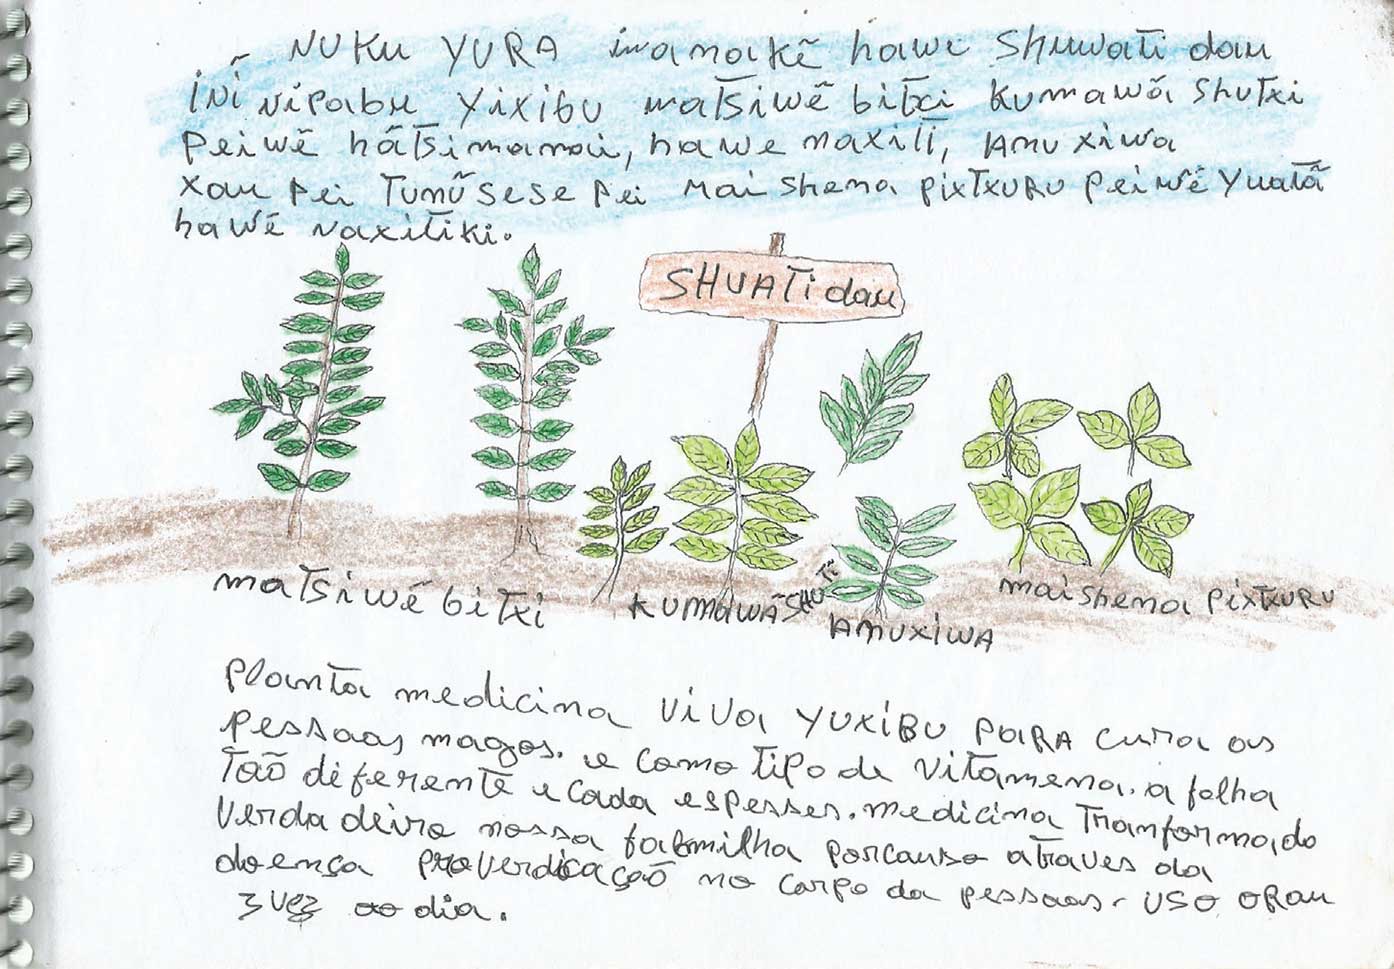 NUKU YURA iwanakẽ hawe Shuwati dau
INĨ NIPabu YIXIBU matsiwẽ bitxi Kumawã Shutxi
Peiwẽ hãtsimamaii, hawe naxiti, AMUXIWA
xau Pei TUMŨSESE Pei Mai Shena PIXTXURU Peiwẽ Yuatã
hawẽ NaxiTiKi.
SHUATi dau
matsiwẽ bitxi
KUMAWÃ SHUTi
AMUXIWA
mai shena PIXTXURU
Planta medicina VIVA YUXIBU PARA cura as
pessoas magos. e como tipo de vitamena. a folha
Tão diferente e cada espesses. medicina Tranforma,do
Verdadeira nossa farmilha porcausa atraves da
doença proverdicação no corpo da pessoas - USO ORau
3 vez ao dia.